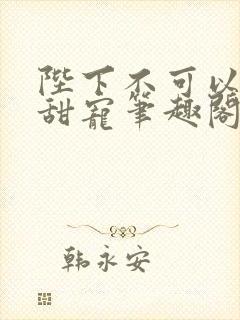 陛下不可以
甜宠笔趣阁
韩永安